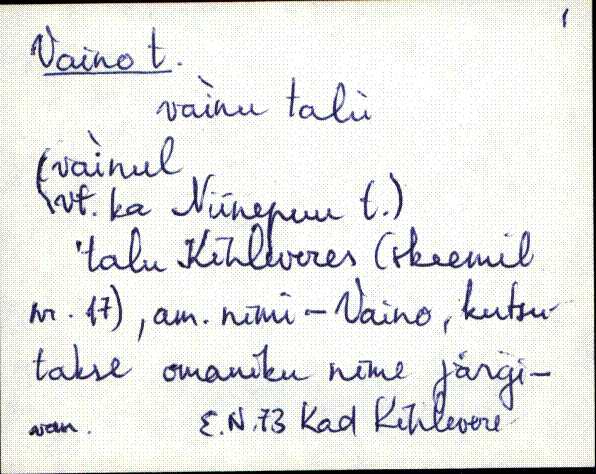 1
Vaino t.
vàinu talù
(vàinul
vt. ka Niinepuu t.)
'talu Kihleveres (skeemil
nr. 17), am. nimi - Vaino, kutsu-
takse omaniku nime järgi -
E.N. 73 Kad Kihlevere